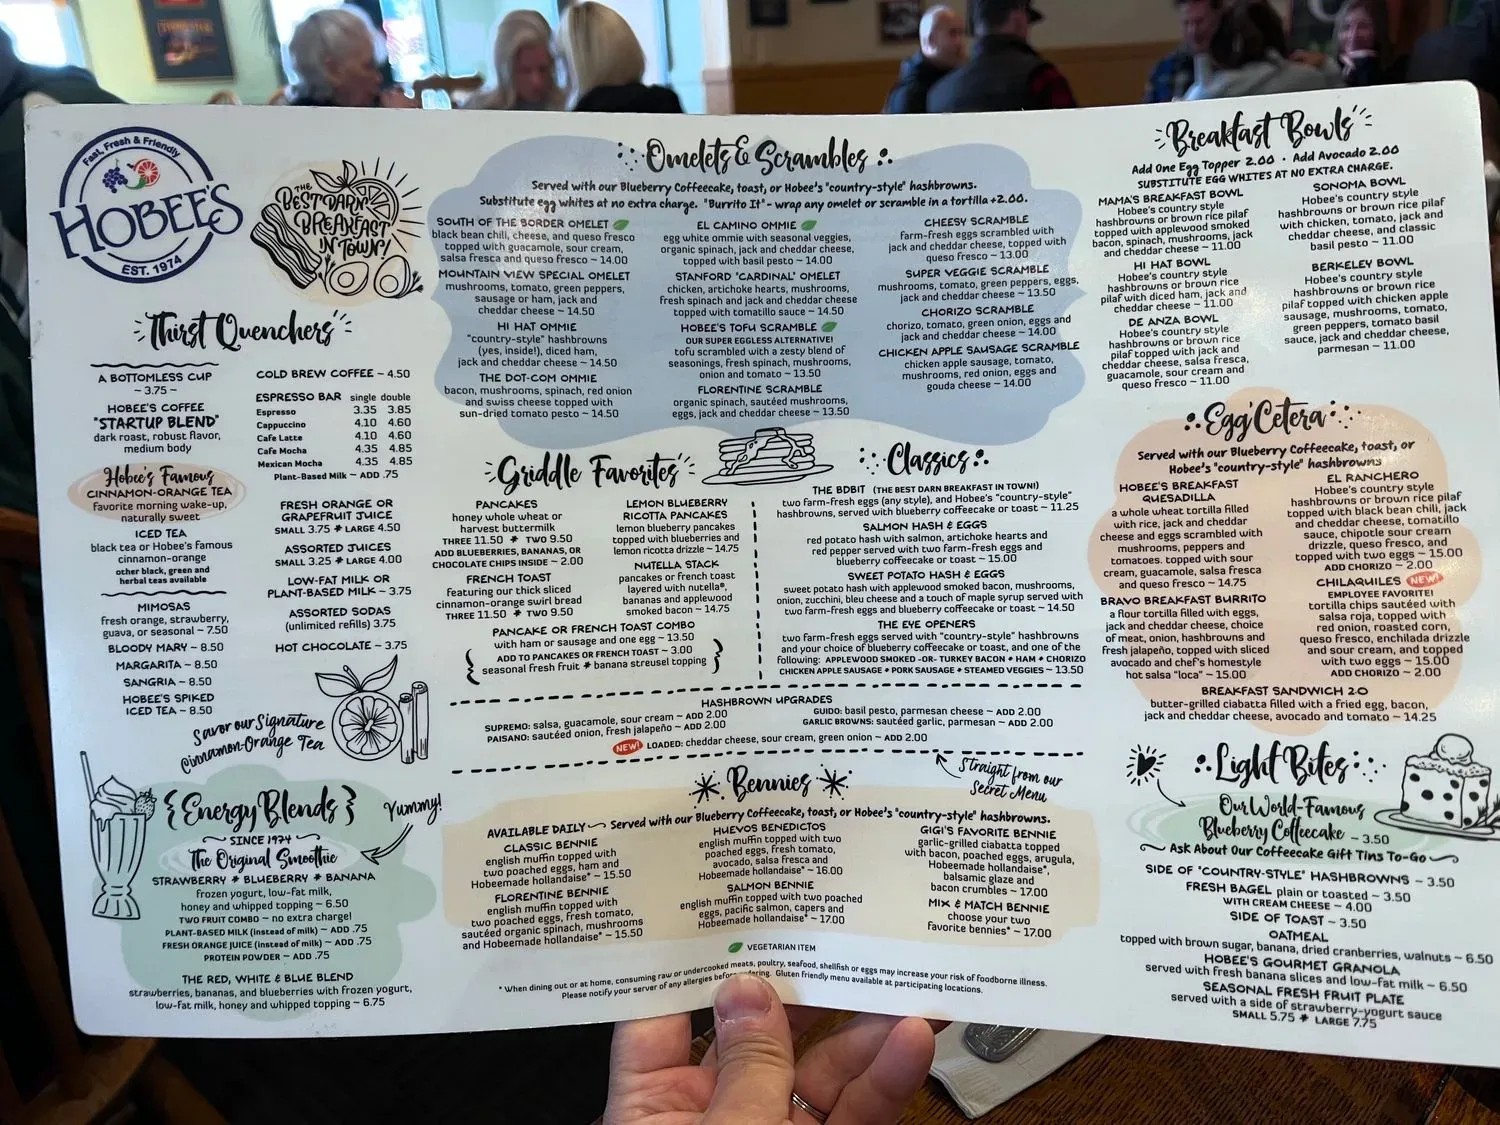 Fast, Fresh & Friendly
HOBEE'S
EST. 1974
THE
BEST DARN
BREAKFAST
IN TOWN!
Thirst Quenchers
A BOTTOMLESS CUP
~ 3.75 ~
HOBEE'S COFFEE
"STARTUP BLEND"
dark roast, robust flavor,
medium body
Hobee's Famous
CINNAMON-ORANGE TEA
favorite morning wake-up,
naturally sweet
ICED TEA
black tea or Hobee's famous
cinnamon-orange
other black, green and
herbal teas available
MIMOSAS
fresh orange, strawberry,
guava, or seasonal ~ 7.50
BLOODY MARY ~ 8.50
MARGARITA ~ 8.50
SANGRIA ~ 8.50
HOBEE'S SPIKED
ICED TEA ~ 8.50
COLD BREW COFFEE ~ 4.50
ESPRESSO BAR single double
Espresso 3.35 3.85
Cappuccino 4.10 4.60
Cafe Latte 4.10 4.60
Cafe Mocha 4.35 4.85
Mexican Mocha 4.35 4.85
Plant-Based Milk ~ ADD .75
FRESH ORANGE OR
GRAPEFRUIT JUICE
SMALL 3.75 * LARGE 4.50
ASSORTED JUICES
SMALL 3.25 * LARGE 4.00
LOW-FAT MILK OR
PLANT-BASED MILK ~ 3.75
ASSORTED SODAS
(unlimited refills) 3.75
HOT CHOCOLATE ~ 3.75
Savor our Signature
Cinnamon-Orange Tea
{ Energy Blends }
Yummy!
~ SINCE 1974 ~
The Original Smoothie
STRAWBERRY * BLUEBERRY * BANANA
frozen yogurt, low-fat milk,
honey and whipped topping ~ 6.50
TWO FRUIT COMBO ~ no extra charge!
PLANT-BASED MILK (instead of milk) ~ ADD .75
FRESH ORANGE JUICE (instead of milk) ~ ADD .75
PROTEIN POWDER ~ ADD .75
THE RED, WHITE & BLUE BLEND
strawberries, bananas, and blueberries with frozen yogurt,
low-fat milk, honey and whipped topping ~ 6.75
Omelets & Scrambles
Served with our Blueberry Coffeecake, toast, or Hobee's "country-style" hashbrowns.
Substitute egg whites at no extra charge. "Burrito It" - wrap any omelet or scramble in a tortilla +2.00.
SOUTH OF THE BORDER OMELET
black bean chili, cheese, and queso fresco
topped with guacamole, sour cream,
salsa fresca and queso fresco ~ 14.00
MOUNTAIN VIEW SPECIAL OMELET
mushrooms, tomato, green peppers,
sausage or ham, jack and
cheddar cheese ~ 14.50
HI HAT OMMIE
"country-style" hashbrowns
(yes, inside!), diced ham,
jack and cheddar cheese ~ 14.50
THE DOT-COM OMMIE
bacon, mushrooms, spinach, red onion
and swiss cheese topped with
sun-dried tomato pesto ~ 14.50
EL CAMINO OMMIE
egg white ommie with seasonal veggies,
organic spinach, jack and cheddar cheese,
topped with basil pesto ~ 14.00
STANFORD "CARDINAL" OMELET
chicken, artichoke hearts, mushrooms,
fresh spinach and jack and cheddar cheese
topped with tomatillo sauce ~ 14.50
HOBEE'S TOFU SCRAMBLE
OUR SUPER EGGLESS ALTERNATIVE!
tofu scrambled with a zesty blend of
seasonings, fresh spinach, mushrooms,
onion and tomato ~ 13.50
FLORENTINE SCRAMBLE
organic spinach, sautéed mushrooms,
eggs, jack and cheddar cheese ~ 13.50
CHEESY SCRAMBLE
farm-fresh eggs scrambled with
jack and cheddar cheese, topped with
queso fresco ~ 13.00
SUPER VEGGIE SCRAMBLE
mushrooms, tomato, green peppers, eggs,
jack and cheddar cheese ~ 13.50
CHORIZO SCRAMBLE
chorizo, tomato, green onion, eggs and
jack and cheddar cheese ~ 14.00
CHICKEN APPLE SAUSAGE SCRAMBLE
chicken apple sausage, tomato,
mushrooms, red onion, eggs and
gouda cheese ~ 14.00
Griddle Favorites
PANCAKES
honey whole wheat or
harvest buttermilk
THREE 11.50 * TWO 9.50
ADD BLUEBERRIES, BANANAS, OR
CHOCOLATE CHIPS INSIDE ~ 2.00
FRENCH TOAST
featuring our thick sliced
cinnamon-orange swirl bread
THREE 11.50 * TWO 9.50
LEMON BLUEBERRY
RICOTTA PANCAKES
lemon blueberry pancakes
topped with blueberries and
lemon ricotta drizzle ~ 14.75
NUTELLA STACK
pancakes or french toast
layered with nutella®,
bananas and applewood
smoked bacon ~ 14.75
PANCAKE OR FRENCH TOAST COMBO
with ham or sausage and one egg ~ 13.50
ADD TO PANCAKES OR FRENCH TOAST ~ 3.00
seasonal fresh fruit * banana streusel topping
Classics
THE BDBIT (THE BEST DARN BREAKFAST IN TOWN!)
two farm-fresh eggs (any style), and Hobee's "country-style"
hashbrowns, served with blueberry coffeecake or toast ~ 11.25
SALMON HASH & EGGS
red potato hash with salmon, artichoke hearts and
red pepper served with two farm-fresh eggs and
blueberry coffeecake or toast ~ 15.00
SWEET POTATO HASH & EGGS
sweet potato hash with applewood smoked bacon, mushrooms,
onion, zucchini, bleu cheese and a touch of maple syrup served with
two farm-fresh eggs and blueberry coffeecake or toast ~ 14.50
THE EYE OPENERS
two farm-fresh eggs served with "country-style" hashbrowns
and your choice of blueberry coffeecake or toast, and one of the
following: APPLEWOOD SMOKED -OR- TURKEY BACON * HAM * CHORIZO
CHICKEN APPLE SAUSAGE * PORK SAUSAGE * STEAMED VEGGIES ~ 13.50
HASHBROWN UPGRADES
SUPREMO: salsa, guacamole, sour cream ~ ADD 2.00
PAISANO: sautéed onion, fresh jalapeño ~ ADD 2.00
GUIDO: basil pesto, parmesan cheese ~ ADD 2.00
GARLIC BROWNS: sautéed garlic, parmesan ~ ADD 2.00
NEW! LOADED: cheddar cheese, sour cream, green onion ~ ADD 2.00
Straight from our
Secret Menu
Bennies
AVAILABLE DAILY ~ Served with our Blueberry Coffeecake, toast, or Hobee's "country-style" hashbrowns.
CLASSIC BENNIE
english muffin topped with
two poached eggs, ham and
Hobeemade hollandaise* ~ 15.50
FLORENTINE BENNIE
english muffin topped with
two poached eggs, fresh tomato,
sautéed organic spinach, mushrooms
and Hobeemade hollandaise* ~ 15.50
HUEVOS BENEDICTOS
english muffin topped with two
poached eggs, fresh tomato,
avocado, salsa fresca and
Hobeemade hollandaise* ~ 16.00
SALMON BENNIE
english muffin topped with two poached
eggs, pacific salmon, capers and
Hobeemade hollandaise* ~ 17.00
GIGI'S FAVORITE BENNIE
garlic-grilled ciabatta topped
with bacon, poached eggs, arugula,
Hobeemade hollandaise*,
balsamic glaze and
bacon crumbles ~ 17.00
MIX & MATCH BENNIE
choose your two
favorite bennies* ~ 17.00
VEGETARIAN ITEM
* When dining out or at home, consuming raw or undercooked meats, poultry, seafood, shellfish or eggs may increase your risk of foodborne illness.
Please notify your server of any allergies before ordering. Gluten friendly menu available at participating locations.
Breakfast Bowls
Add One Egg Topper 2.00 · Add Avocado 2.00
SUBSTITUTE EGG WHITES AT NO EXTRA CHARGE.
MAMA'S BREAKFAST BOWL
Hobee's country style
hashbrowns or brown rice pilaf
topped with applewood smoked
bacon, spinach, mushrooms, jack
and cheddar cheese ~ 11.00
HI HAT BOWL
Hobee's country style
hashbrowns or brown rice
pilaf with diced ham, jack and
cheddar cheese ~ 11.00
DE ANZA BOWL
Hobee's country style
hashbrowns or brown rice
pilaf topped with jack and
cheddar cheese, salsa fresca,
guacamole, sour cream and
queso fresco ~ 11.00
SONOMA BOWL
Hobee's country style
hashbrowns or brown rice pilaf
with chicken, tomato, jack and
cheddar cheese, and classic
basil pesto ~ 11.00
BERKELEY BOWL
Hobee's country style
hashbrowns or brown rice
pilaf topped with chicken apple
sausage, mushrooms, tomato,
green peppers, tomato basil
sauce, jack and cheddar cheese,
parmesan ~ 11.00
Egg'Cetera
Served with our Blueberry Coffeecake, toast, or
Hobee's "country-style" hashbrowns
HOBEE'S BREAKFAST
QUESADILLA
a whole wheat tortilla filled
with rice, jack and cheddar
cheese and eggs scrambled with
mushrooms, peppers and
tomatoes. topped with sour
cream, guacamole, salsa fresca
and queso fresco ~ 14.75
BRAVO BREAKFAST BURRITO
a flour tortilla filled with eggs,
jack and cheddar cheese, choice
of meat, onion, hashbrowns and
fresh jalapeño, topped with sliced
avocado and chef's homestyle
hot salsa "loca" ~ 15.00
EL RANCHERO
Hobee's country style
hashbrowns or brown rice pilaf
topped with black bean chili, jack
and cheddar cheese, tomatillo
sauce, chipotle sour cream
drizzle, queso fresco, and
topped with two eggs ~ 15.00
ADD CHORIZO ~ 2.00
CHILAQUILES NEW!
EMPLOYEE FAVORITE!
tortilla chips sautéed with
salsa roja, topped with
red onion, roasted corn,
queso fresco, enchilada drizzle
and sour cream, and topped
with two eggs ~ 15.00
ADD CHORIZO ~ 2.00
BREAKFAST SANDWICH 2.0
butter-grilled ciabatta filled with a fried egg, bacon,
jack and cheddar cheese, avocado and tomato ~ 14.25
Light Bites
Our World-Famous
Blueberry Coffeecake ~ 3.50
Ask About Our Coffeecake Gift Tins To-Go
SIDE OF "COUNTRY-STYLE" HASHBROWNS ~ 3.50
FRESH BAGEL plain or toasted ~ 3.50
WITH CREAM CHEESE ~ 4.00
SIDE OF TOAST ~ 3.50
OATMEAL
topped with brown sugar, banana, dried cranberries, walnuts ~ 6.50
HOBEE'S GOURMET GRANOLA
served with fresh banana slices and low-fat milk ~ 6.50
SEASONAL FRESH FRUIT PLATE
served with a side of strawberry-yogurt sauce
SMALL 5.75 * LARGE 7.75